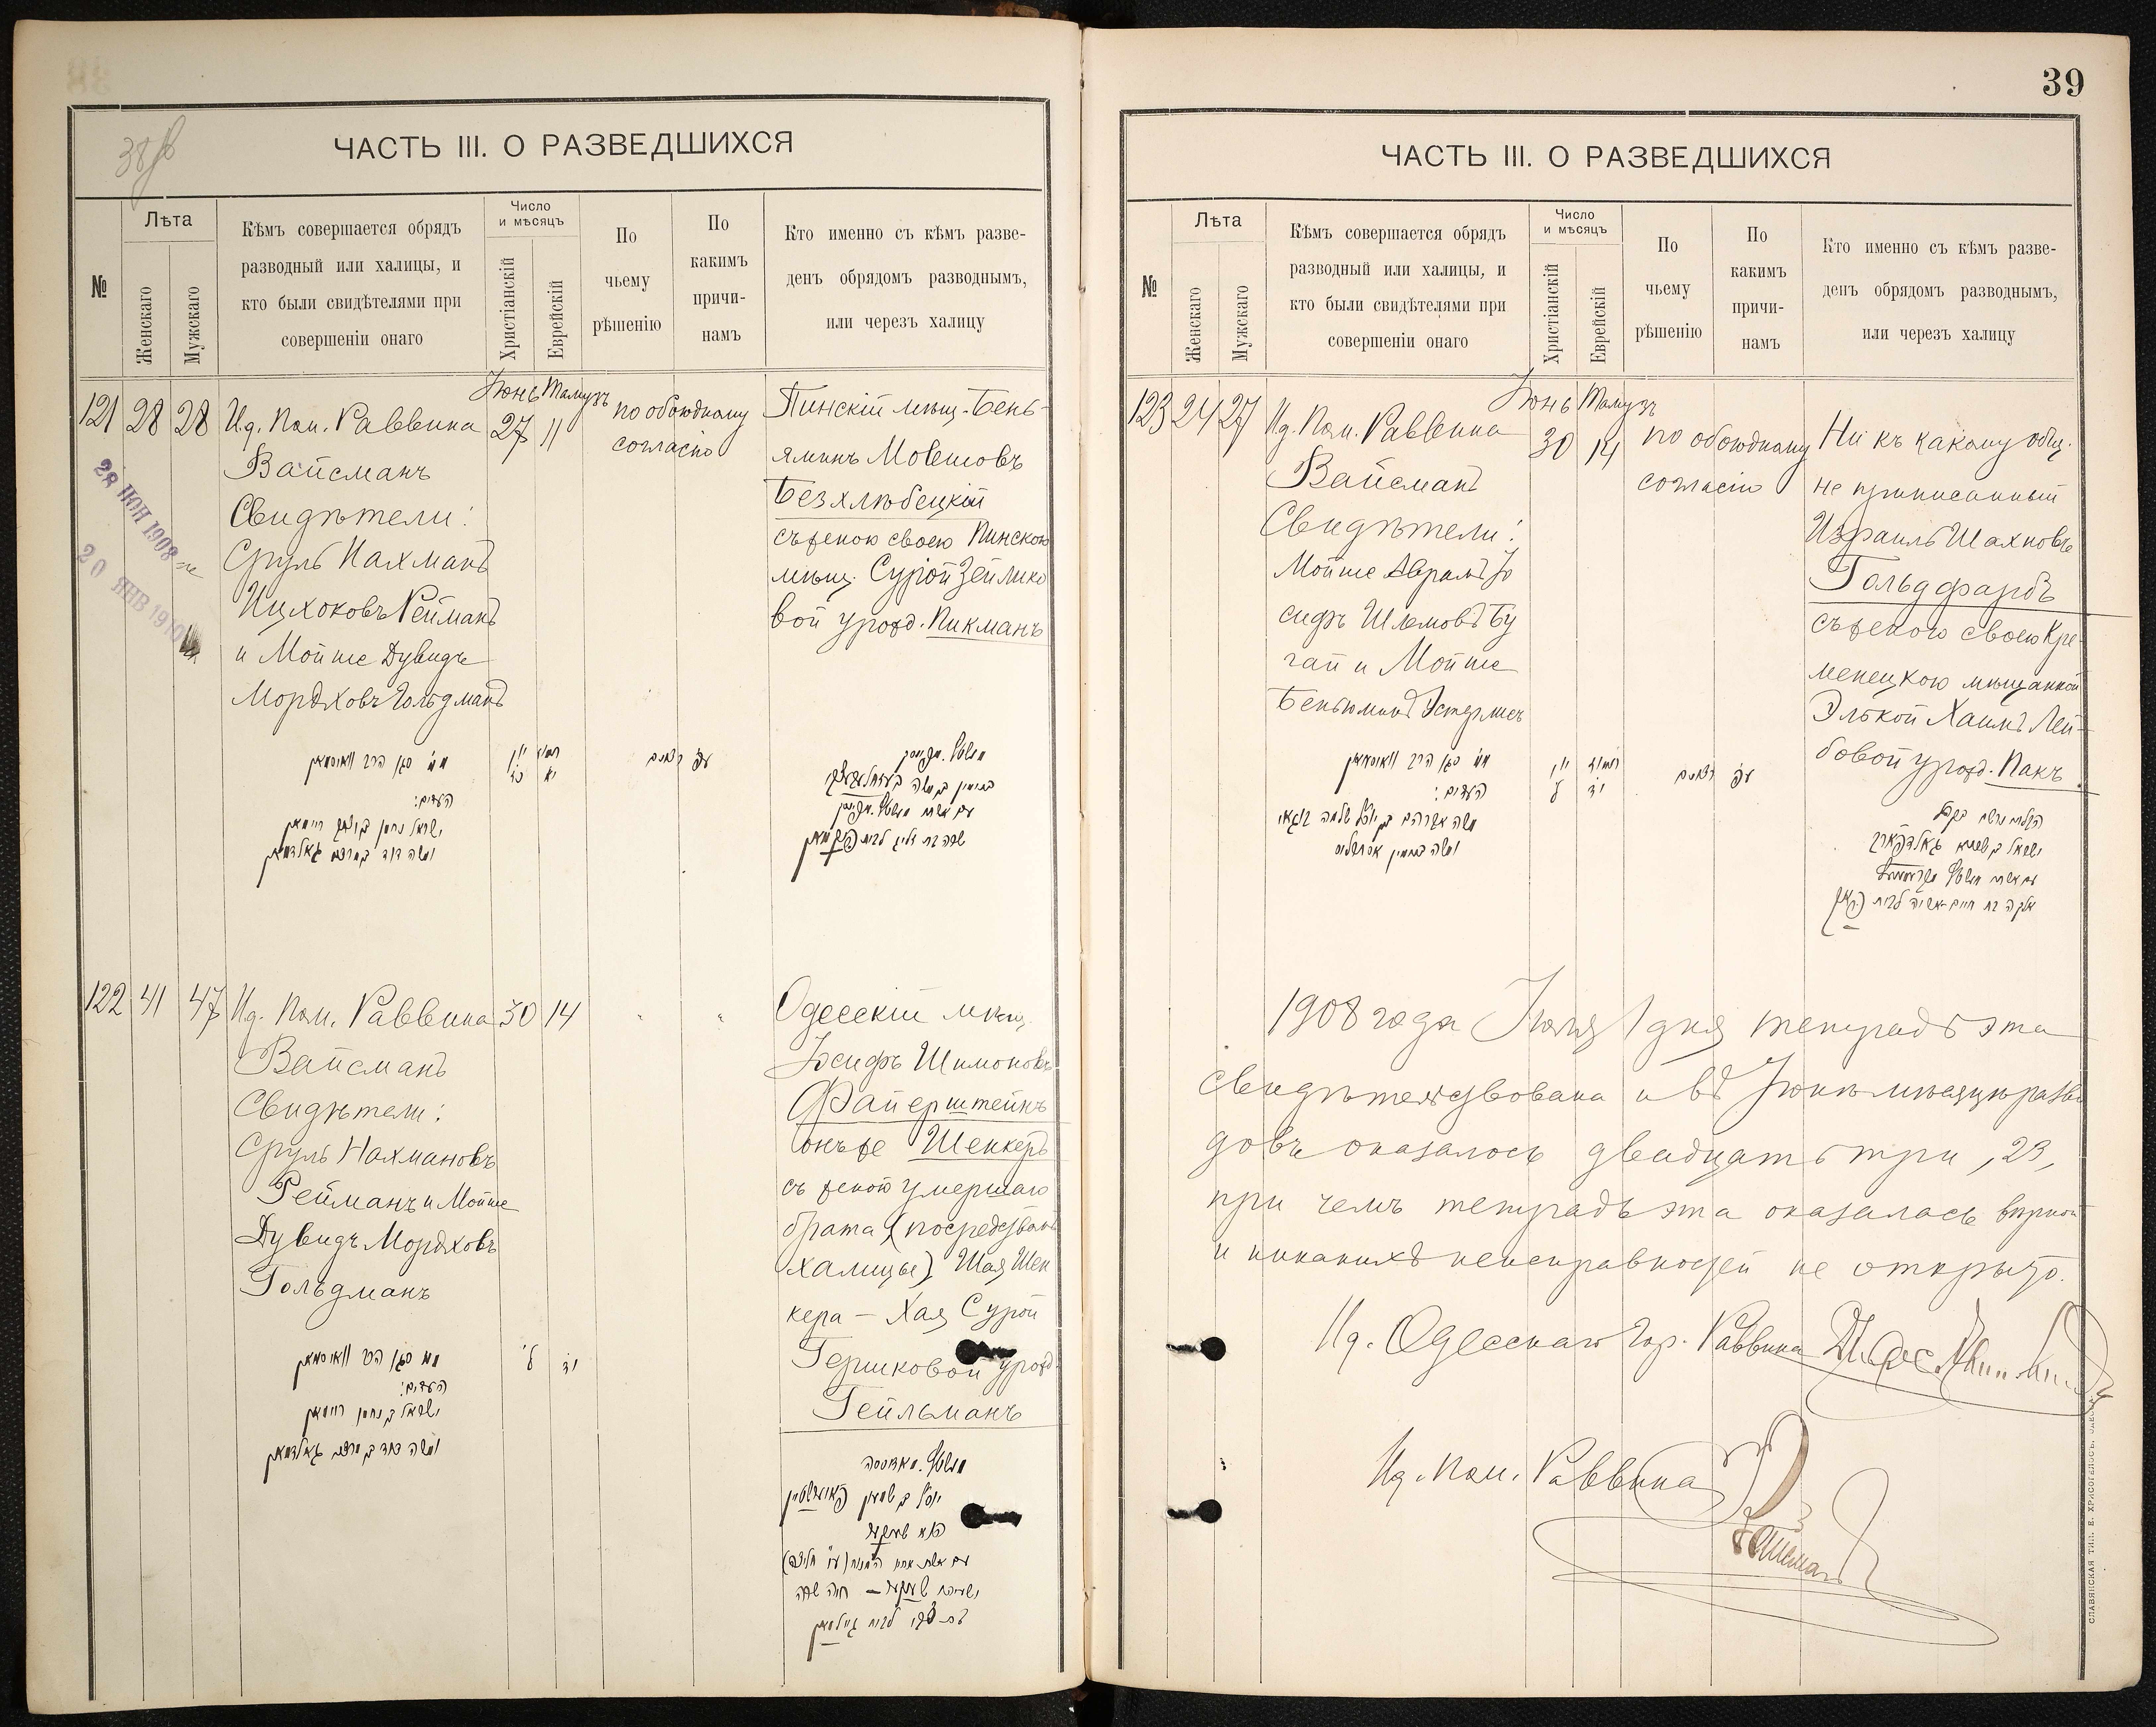 38об
ЧАСТЬ III. О РАЗВЕДШИХСЯ
№
Лѣта
Женскаго
Мужскаго
Кѣмъ совершается обрядъ
разводный или халицы, и
кто были свидѣтелями при
совершеніи онаго
Число
и мѣсяцъ
Христіанскій
Еврейскій
По
чьему
рѣшенію
По
какимъ
причи-
намъ
Кто именно съ кѣмъ разве-
денъ обрядомъ разводнымъ,
или черезъ халицу
121 28 28
Ид. Пом. Раввина
Вайсманъ
Свидѣтели:
Сруль Нахманъ
Ицхоковъ Рейманъ
и Мойше Дувидъ
Мордховъ Гольдманъ
Іюнь Тамузъ
27 11
по обоюдному
согласію
Пинскій мѣщ. Бень-
яминъ Мовшовъ
Безхлюбецкій
съ женою своею Пинскою
мѣщ. Сурой Зейлико
вой урожд. Пикманъ
28 ИЮН 1908
20 ЯНВ 1910
העדים:
ישראל נחמן בן יצחק ריימאן
ומשה דוד בן מרדכי גאלדמאן
122 41 47
Ид. Пом. Раввина
Вайсманъ
Свидѣтели:
Сруль Нахмановъ
Рейманъ и Мойше
Дувидъ Мордховъ
Гольдманъ
30 14
" "
Одесскій мѣщ.
Іосифъ Шимоновъ
Файерштейнъ
онъ же Шенкеръ
съ женой умершаго
брата (посредствомъ
халицы) Шая Шен
кера — Хая Сурой
Гершковой урожд.
Гейльманъ
העדים:
ישראל בן נחמן ריימאן
ומשה דוד בן מרדכי גאלדמאן
39
ЧАСТЬ III. О РАЗВЕДШИХСЯ
№
Лѣта
Женскаго
Мужскаго
Кѣмъ совершается обрядъ
разводный или халицы, и
кто были свидѣтелями при
совершеніи онаго
Число
и мѣсяцъ
Христіанскій
Еврейскій
По
чьему
рѣшенію
По
какимъ
причи-
намъ
Кто именно съ кѣмъ разве-
денъ обрядомъ разводнымъ,
или черезъ халицу
123 24 27
Ид. Пом. Раввина
Вайсманъ
Свидѣтели:
Мойше Аврамъ Іо
сифъ Шлемовъ Бу
гай и Мойше
Беньюминъ Эстерлисъ
Іюнь Тамузъ
30 14
по обоюдному
согласію
Ни къ какому общ.
не приписанный
Израиль Шахновъ
Гольдфарбъ
съ женою своею Кре-
менецкою мѣщанкой
Элькой Хаимъ Лей-
бовой урожд. Пакъ
העדים:
1908 года Іюля 1 дня тетрадь эта
свидѣтельствована и въ Іюнѣ мѣсяцѣ разво
довъ оказалось двадцать три, 23,
при чемъ тетрадь эта оказалась вѣрной
и никакихъ неисправностей не открыто.
Ид. Одесскаго Гор. Раввина
Ид. Пом. Раввина
Вайсманъ